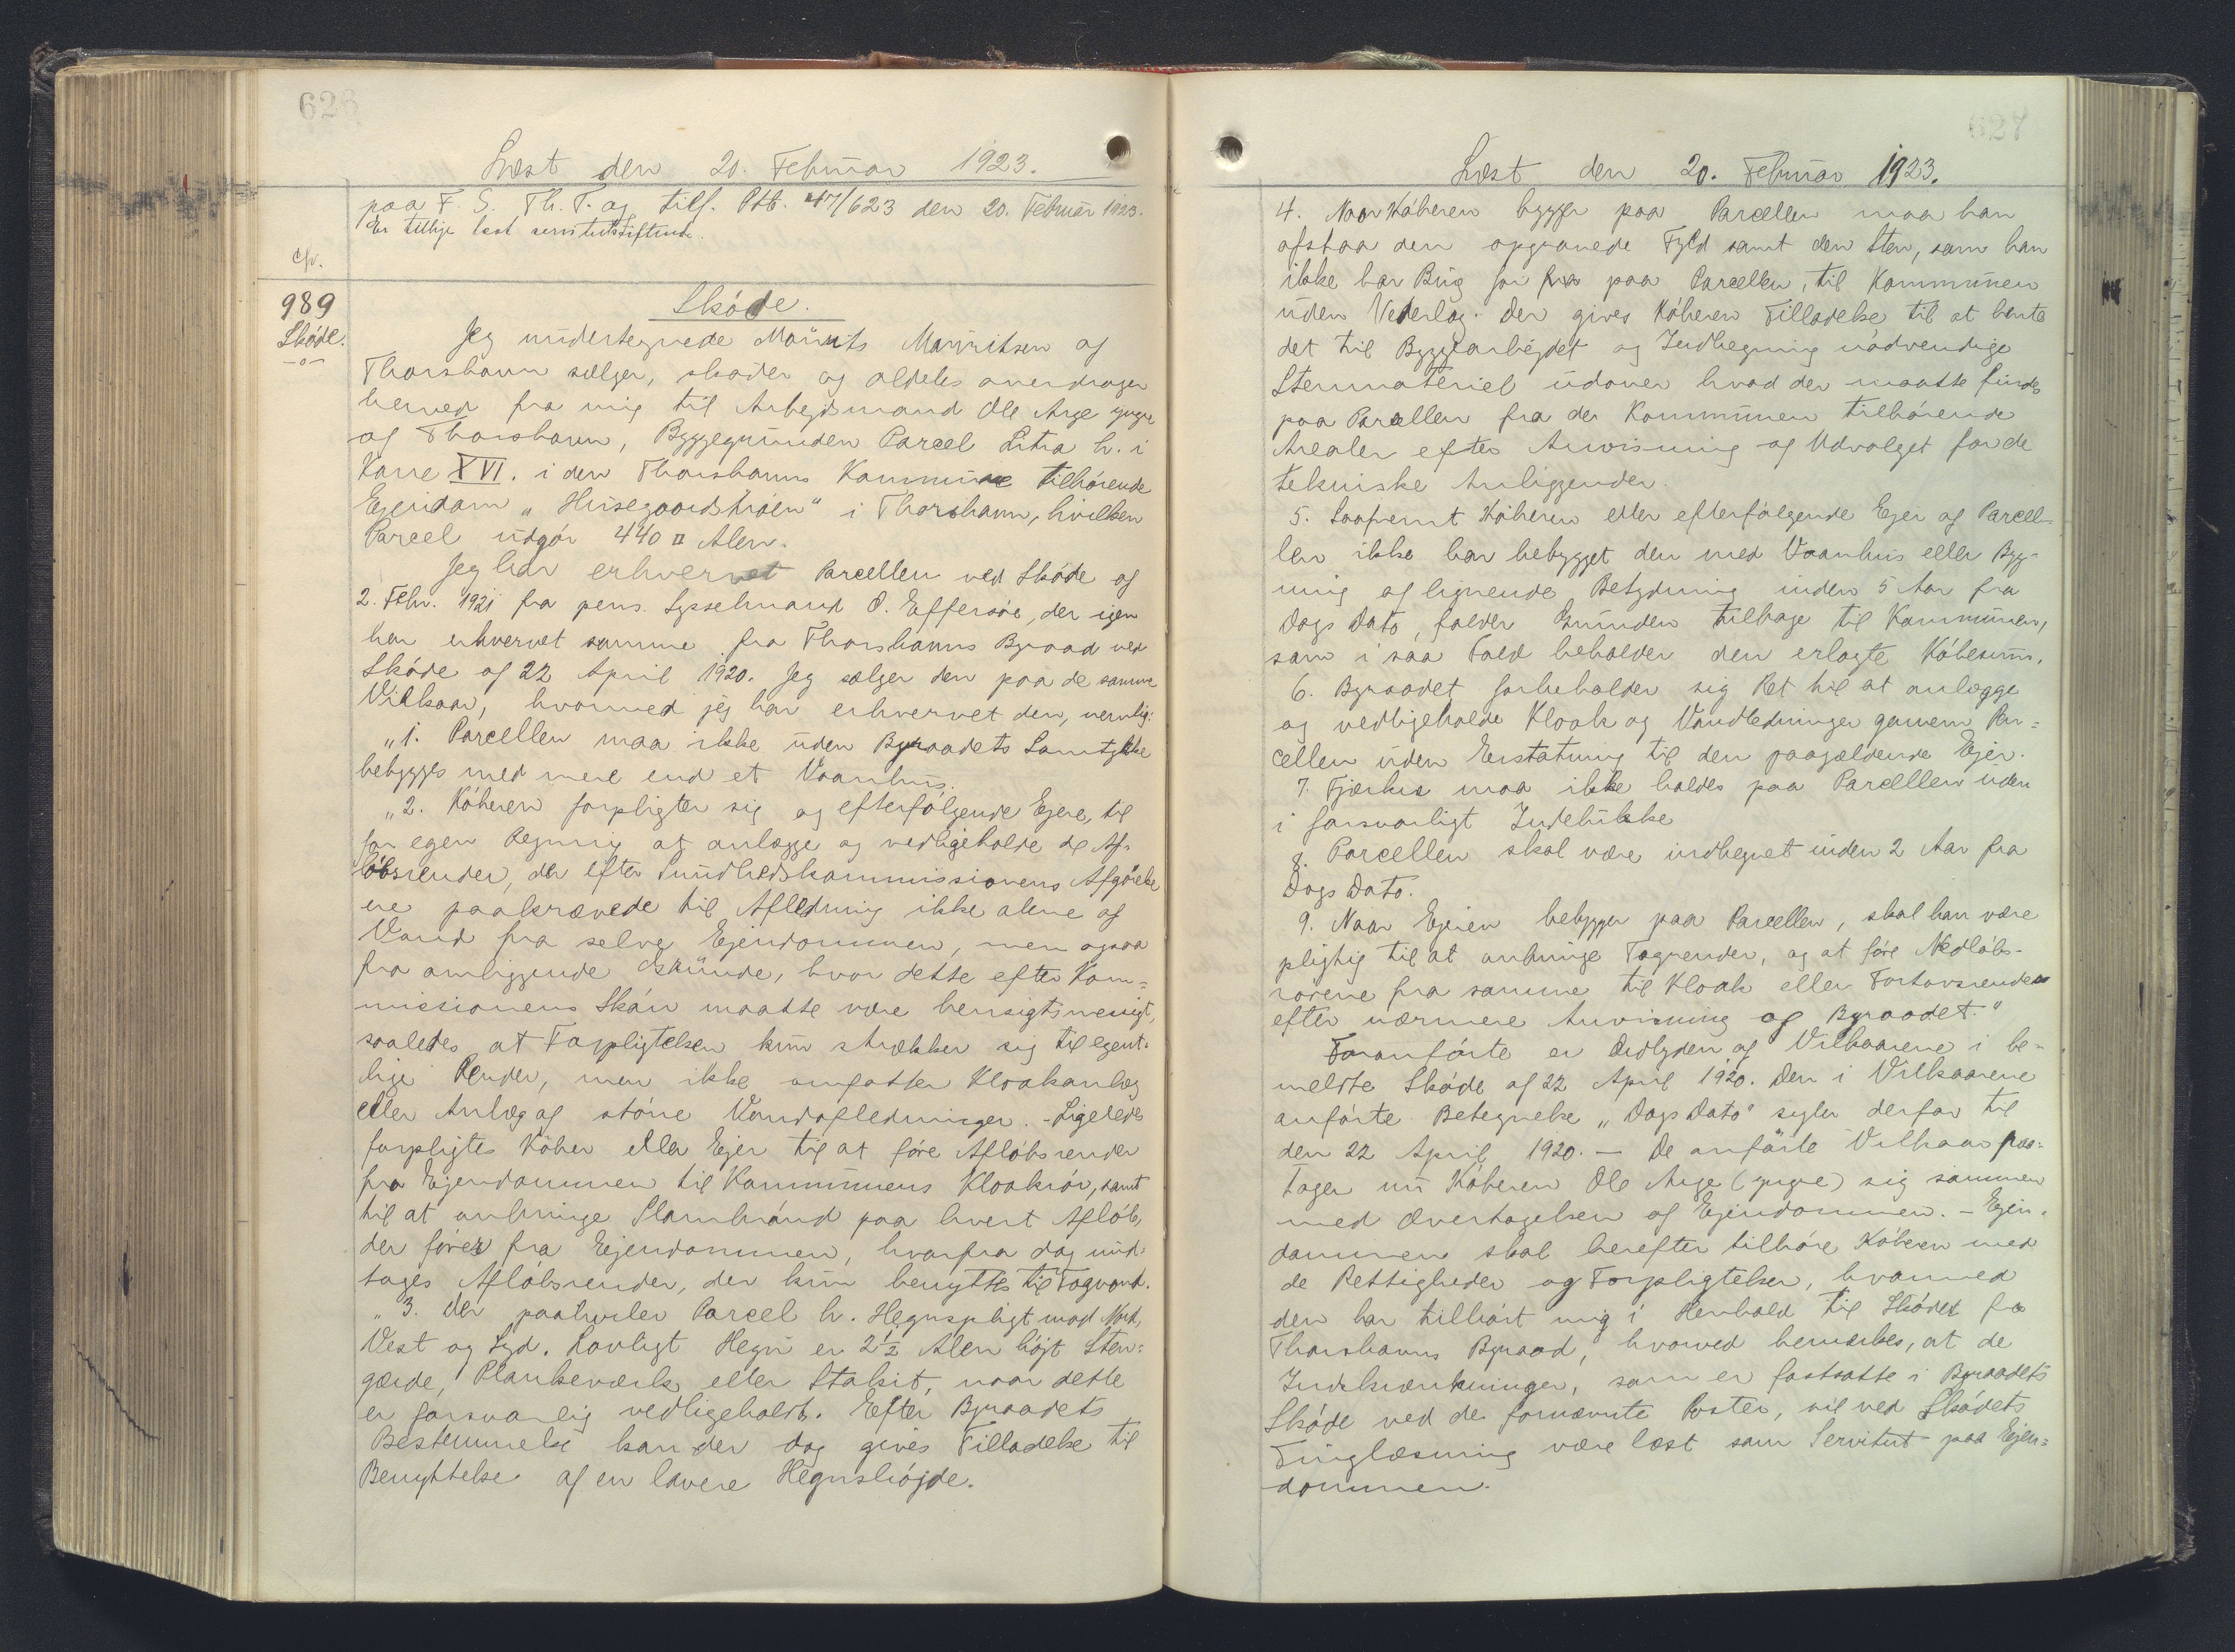 626
Læst den 20. Februar 1923.
paa F. S. Th. T. og tilf. Ptb. 47/623 den 20. Februar 1923.
Er tillige læst servitutstiftende.
cfr.
989
Skøde.
Skøde.
Jeg undertegnede Maurits Mauritsen af
Thorshavn sælger, skøder og aldeles overdrager
herved fra mig til Arbejdsmand Ole Arge yngre
af Thorshavn, Byggegrunden Parcel Litra h. i
Karre XVI. i den Thorshavns Kommune tilhørende
Ejendom „Husegaardstrøen“ i Thorshavn, hvilken
Parcel udgør 440 □ Alen.
Jeg har erhvervet Parcellen ved Skøde af
2. Febr. 1921 fra pens. Sysselmand O. Effersøe, der igen
har erhvervet samme fra Thorshavns Byraad ved
Skøde af 22 April 1920. Jeg sælger den paa de samme
Vilkaar, hvormed jeg har erhvervet den, nemlig:
„1. Parcellen maa ikke uden Byraadets Samtykke
bebygges med mere end et Vaanhus.
„2. Køberen forpligter sig og efterfølgende Ejere, til
for egen Regning at anlægge og vedligeholde de Af-
løbsrender, der efter Sundhedskommissionens Afgørelse
ere paakrævede til Afledning ikke alene af
Vand fra selve Ejendommen, men ogsaa
fra omliggende Grunde, hvor dette efter Kom=
missionens Skøn maatte være hensigtsmæssigt,
saaledes at Forpligtelsen kun strækker sig til egent-
lige Render, men ikke omfatter Kloakanlæg
eller Anlæg af større Vandafledninger. - Ligeledes
forpligtes Køber eller Ejer til at føre Afløbsrender
fra Ejendommen til Kommunens Kloakrør, samt
til at anbringe Slambrønd paa hvert Afløb,
der fører fra Ejendommen, hvorfra dog und-
tages Afløbsrender, der kun benyttes til Tagvand.
„3. Der paahviler Parcel h. Hegnspligt mod Nord,
Vest og Syd. Lovligt Hegn er 2½ Alen højt Sten=
gærde, Plankeværk eller Stakit, naar dette
er forsvarlig vedligeholdt. Efter Byraadets
Bestemmelse kan der dog gives Tilladelse til
Benyttelse af en lavere Hegnshøjde.
627
Læst den 20. Februar 1923.
4. Naar Køberen bygger paa Parcellen maa han
afstaa den opgravede Fyld samt den Sten, som han
ikke har Brug for paa Parcellen, til Kommunen
uden Vederlag. Der gives Køberen Tilladelse til at hente
det til Byggearbejdet og Indhegning nødvendige
Stenmateriel udover hvad der maatte findes
paa Parcellen fra de Kommunen tilhørende
Arealer efter Anvisning af Udvalget for de
tekniske Anliggender.
5. Saafremt Køberen eller efterfølgende Ejer af Parcel-
len ikke har bebygget den med Vaanhus eller Byg-
ning af lignende Betydning inden 5 Aar fra
Dags Dato, falder Grunden tilbage til Kommunen,
som i saa Fald beholder den erlagte Købesum.
6. Byraadet forbeholder sig Ret til at anlægge
og vedligeholde Kloak og Vandledninger gennem Par=
cellen uden Erstatning til den paagældende Ejer.
7. Fjerkræ maa ikke holdes paa Parcellen uden
i forsvarligt Indelukke
8. Parcellen skal være indhegnet inden 2 Aar fra
Dags Dato.
9. Naar Ejeren bebygger paa Parcellen, skal han være
pligtig til at anbringe Tagrender, og at føre Nedløbs-
rørene fra samme til Kloak eller Fortovsrenden
efter nærmere Anvisning af Byraadet.“
Foranførte er Ordlyden af Vilkaarene i be-
meldte Skøde af 22 April 1920. Den i Vilkaarene
anførte Betegnelse „Dags Dato“ sigter derfor til
den 22 April 1920. — De anførte Vilkaar paa=
tager nu Køberen Ole Arge (yngre) sig sammen
med Overtagelsen af Ejendommen. - Ejen-
dommen skal herefter tilhøre Køberen med
de Rettigheder og Forpligtelser, hvormed
den har tilhørt mig i Henhold til Skødet fra
Thorshavns Byraad, hvorved bemærkes, at de
Indskrænkninger, som er fastsatte i Byraadets
Skøde ved de fornævnte Poster, vil ved Skødets
Tinglæsning være læst som Servitut paa Ejen=
dommen.